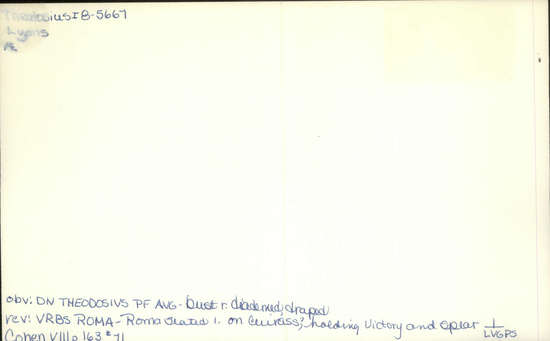 Theodosius I B-5667
Lyons
Æ
obv: DN THEODOSIVS PF AVG - bust r. diademed, draped
rev: VRBS ROMA - Roma seated l. on cuirass, holding Victory and spear 1/LVGPS
Cohen VIII p 163 #71